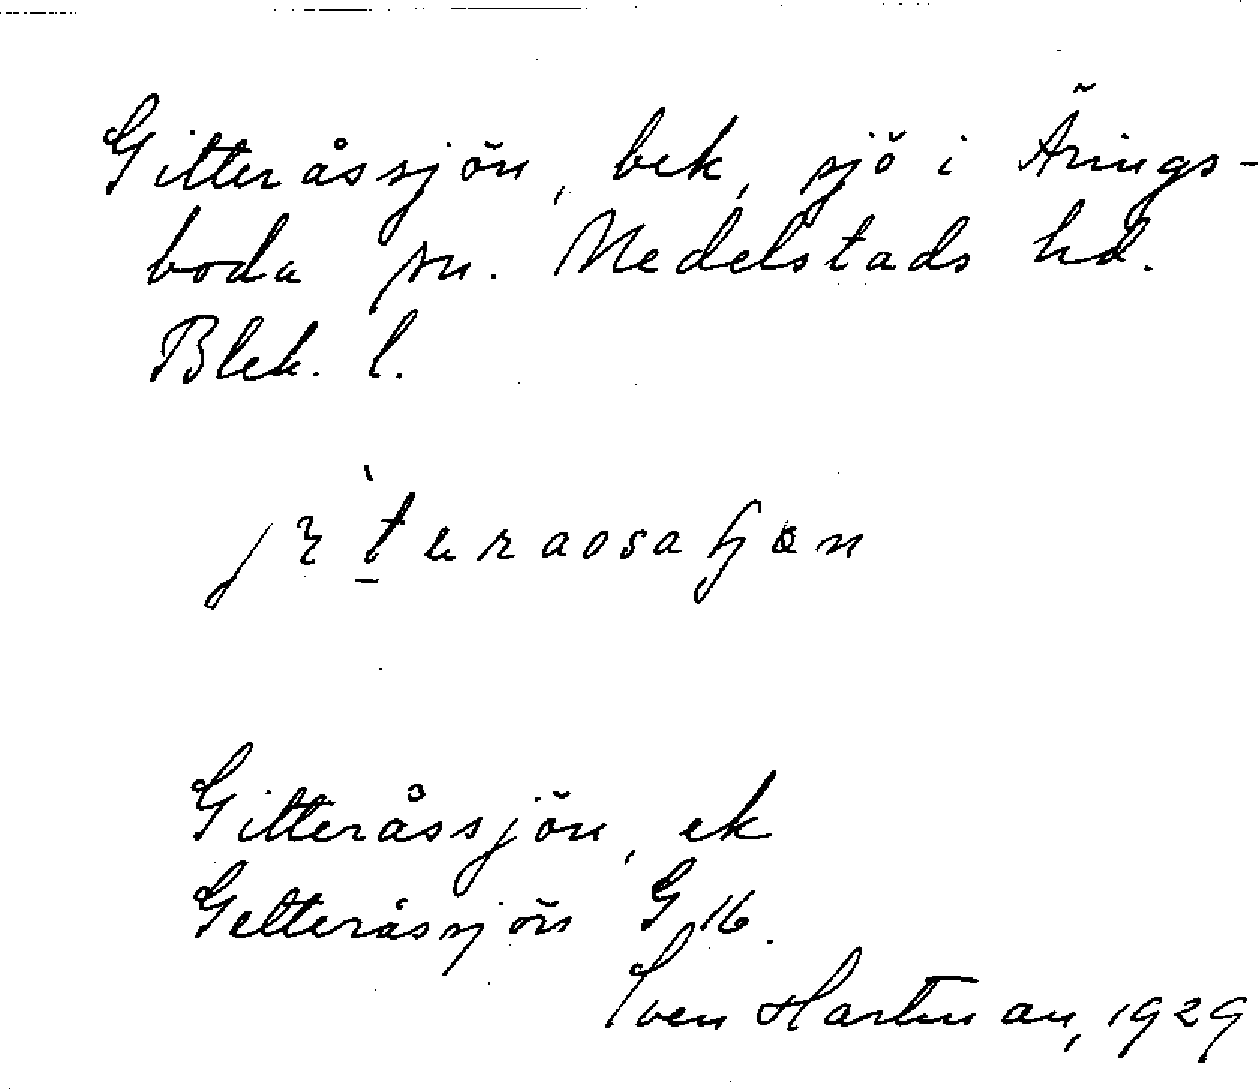 Gitteråssjön, bek, sjö i Ärings-
boda sn. Medelstads hd.
Blek. l.
Gitteråssjön, ek
Getteråssjön G 16.
Sven Hartman, 1929